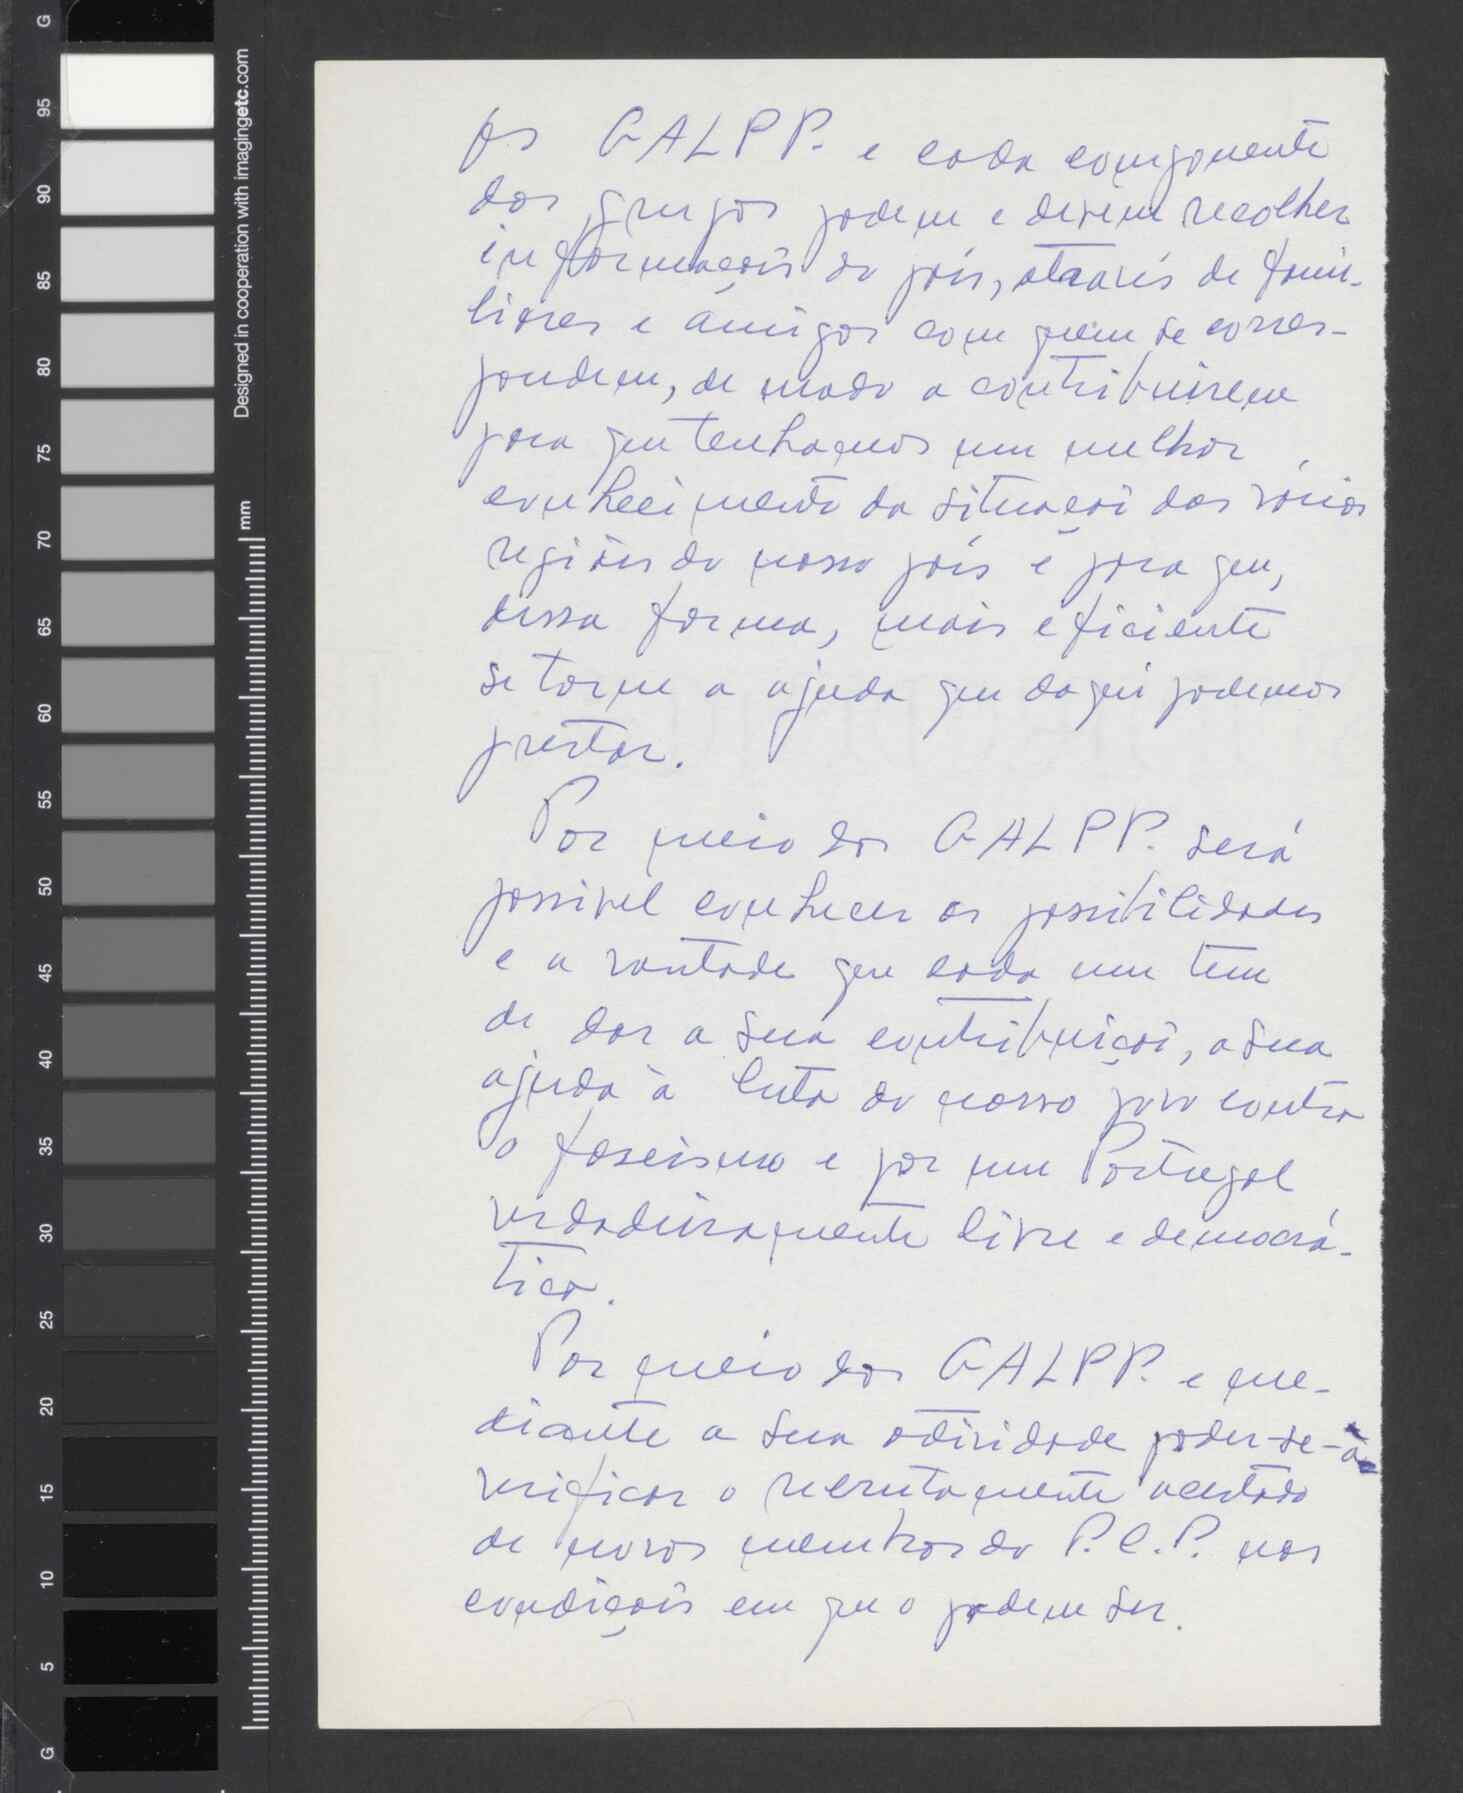 Os GALPP. e cada componente
dos grupos podem e devem recolher
informações do país, através de fami-
liares e amigos com quem se corres-
pondem, de modo a contribuirem
para que tenhamos um melhor
conhecimento da situação das várias
regiões do nosso país e para que,
dessa forma, mais eficiente
se torne a ajuda que daqui podemos
prestar.
Por meio dos GALPP. será
possível conhecer as possibilidades
e a vontade que cada um tem
de dar a sua contribuição, a sua
ajuda à luta do nosso povo contra
o fascismo e por um Portugal
verdadeiramente livre e democrá-
tico.
Por meio dos GALPP. e me-
diante a sua actividade poder-se-á
verificar o recrutamento acertado
de novos membros do P.C.P. nas
condições em que o podem ser.
Designed in cooperation with imagingetc.com
mm
G
95
90
85
80
75
70
65
60
55
50
45
40
35
30
25
20
15
10
5
G